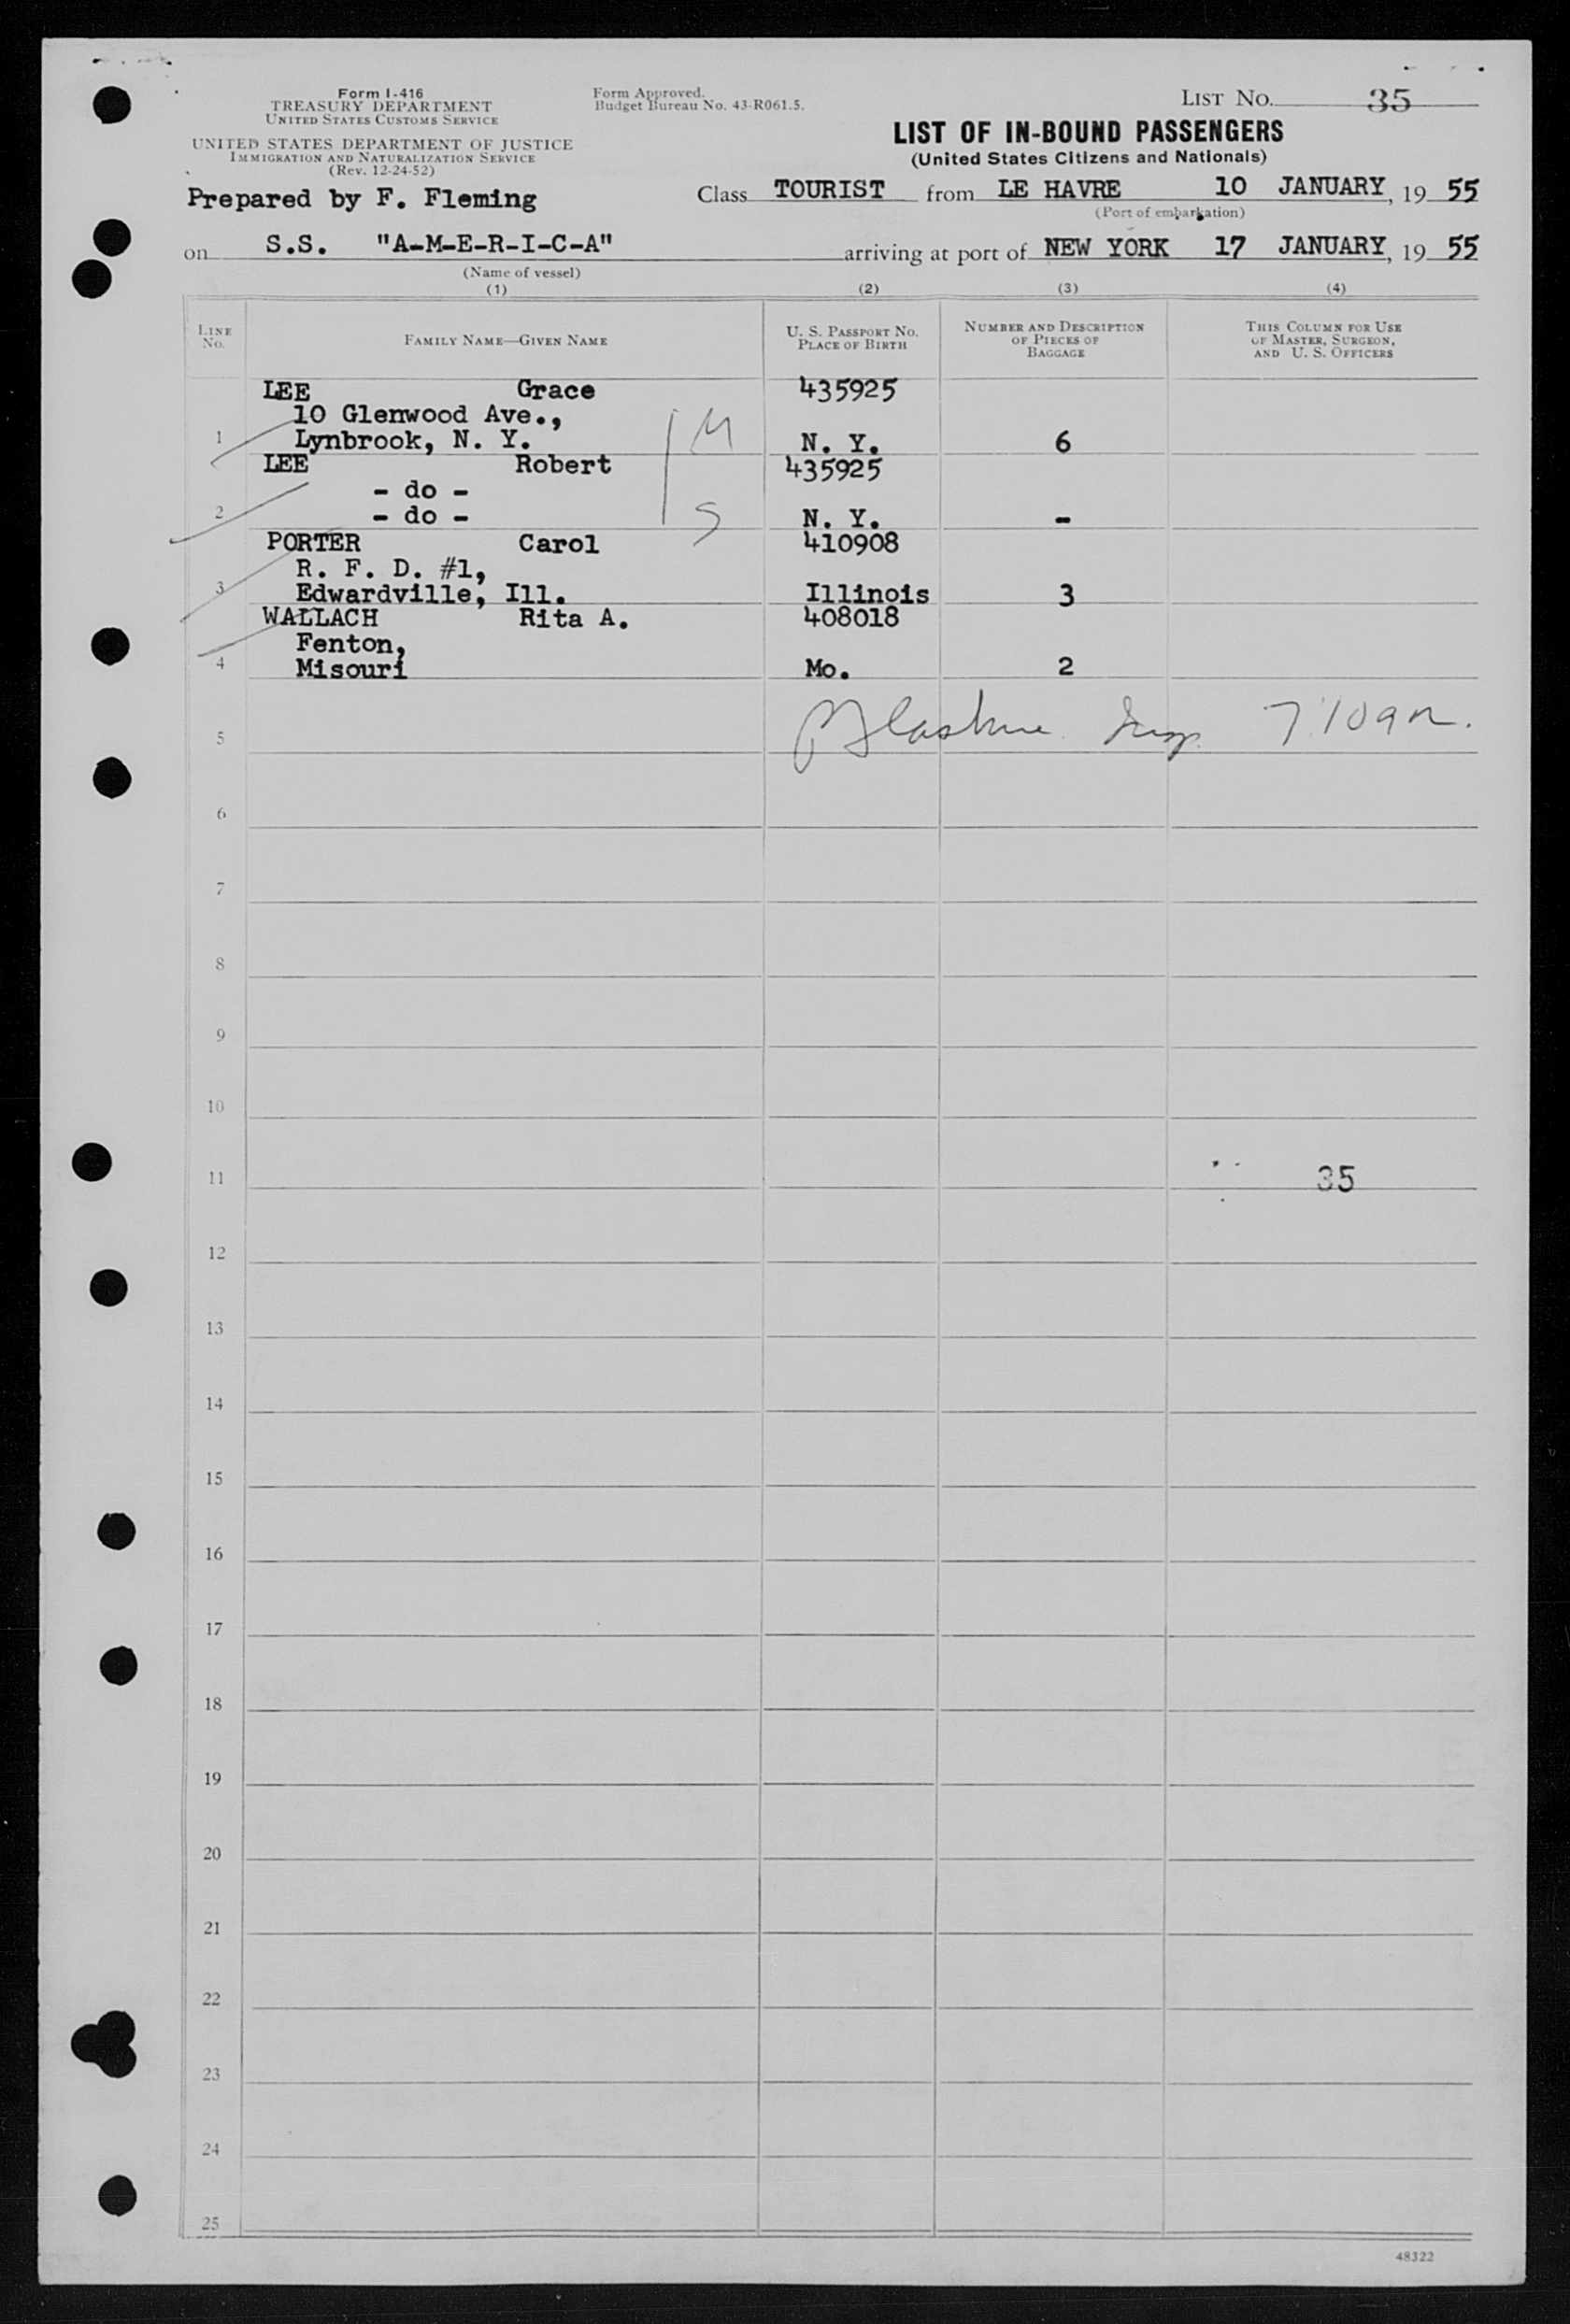 Form I-416
TREASURY DEPARTMENT
UNITED STATES CUSTOMS SERVICE
UNITED STATES DEPARTMENT OF JUSTICE
IMMIGRATION AND NATURALIZATION SERVICE
(Rev. 12-24-52)
Form Approved.
Budget Bureau No. 43-R061.5.
LIST NO. 35
LIST OF IN-BOUND PASSENGERS
(United States Citizens and Nationals)
Prepared by F. Fleming
Class TOURIST from LE HAVRE 10 JANUARY, 19 55
(Port of embarkation)
on S.S. "A-M-E-R-I-C-A" arriving at port of NEW YORK 17 JANUARY, 19 55
(Name of vessel)
(1) (2) (3) (4)
LINE NO.
FAMILY NAME—GIVEN NAME
U. S. PASSPORT NO.
PLACE OF BIRTH
NUMBER AND DESCRIPTION
OF PIECES OF
BAGGAGE
THIS COLUMN FOR USE
OF MASTER, SURGEON,
AND U. S. OFFICERS
LEE Grace 435925
10 Glenwood Ave.,
1 Lynbrook, N. Y. M N. Y. 6
LEE Robert 435925
- do -
2 - do - S N. Y. -
PORTER Carol 410908
R. F. D. #1,
3 Edwardville, Ill. Illinois 3
WALLACH Rita A. 408018
Fenton,
4 Misouri Mo. 2
5 7:10 am.
6
7
8
9
10
11 35
12
13
14
15
16
17
18
19
20
21
22
23
24
25
48322